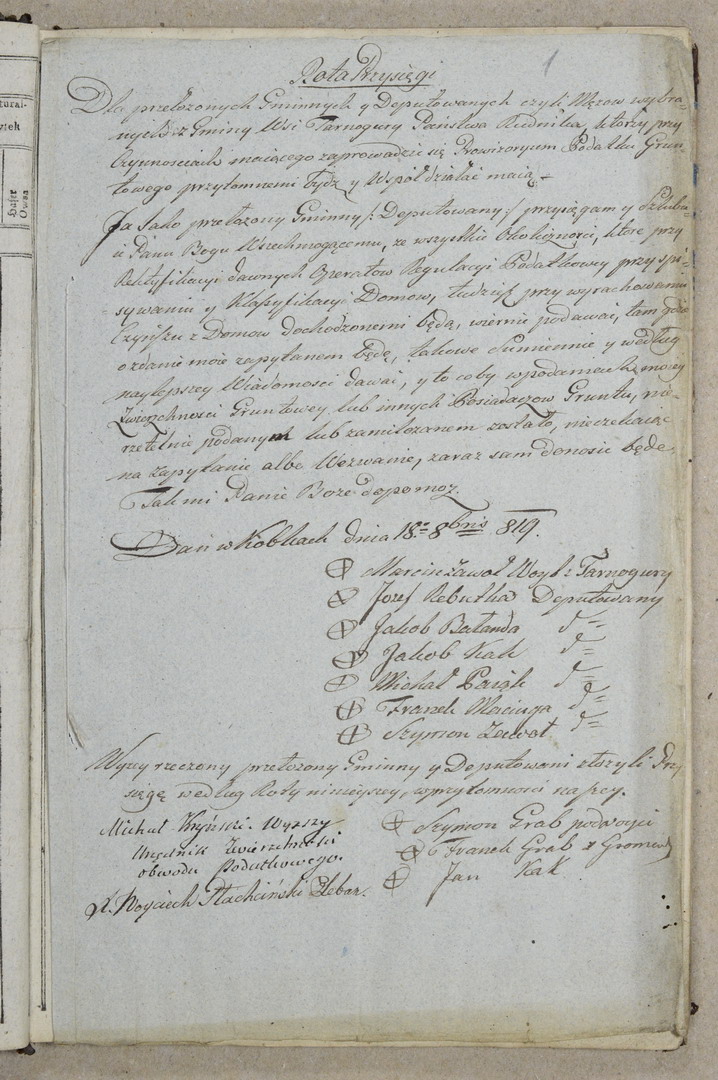 tural-
ytek
Hafer
Owsa
1
Rota Przysięgi
Dla przełożonych Gminnych y Deputowanych czyli Mężow wybra-
nych z Gminy Wsi Tarnogury Państwa Rudnika, ktorzy przy
Czynnosciach maiącego zaprowadzić się Prowizoryum Podatku Grun-
towego przytomnemi bydź y Wspoł działać maią.
Ja Jako przełozony Gminny /: Deputowany :/ przysięgam y Szlubu-
ię Panu Bogu Wszechmogącemu, ze wszystkie Okoliczności, ktore przy
Rektyfikacyi dawnych Operatow Regulacyi Podatkowey przy spi-
sywaniu y Klassyfikacyi Domow, tudzież przy wyrachowaniu
Czynszu z Domow dochodzonemi będą, wiernie podawać, tam gdzie
o zdanie moie zapytanem będę, takowe Sumiennie y według
naylepszey Wiadomosci dawać, y to coby w podaniach mowey
Zwierzchności Gruntowey lub innych Posiadaczow Gruntu, nie-
rzetelnie podanym lub zamilczanem zostało, nieczekaiąc
na zapytanie albo Wezwanie, zaraz sam donosić będę.
Tak mi Panie Boze dopomoz.
Dań w Kobkach dnia 18. 8bris 819.
Marcin Zawoł Woyt z Tarnogury
Jozef Rebutka Deputowany
Jakob Batanda d⁰
Jakob Kak d⁰
Michał d⁰
Franek Maciuga d⁰
Szymon Zawoł d⁰
Wyzy rzeczony przełozony Gminny y Deputowani złozyli Przy
sięgę według Roty ninieyszey, w przytomności naszey.
Michał Wyzszy
Urzędnik Zwierzchności
obwodu Podatkowego.
Szymon Grab podwoyci
Franek Grab z Gromady
Jan Kak
Woyciech Stachciński